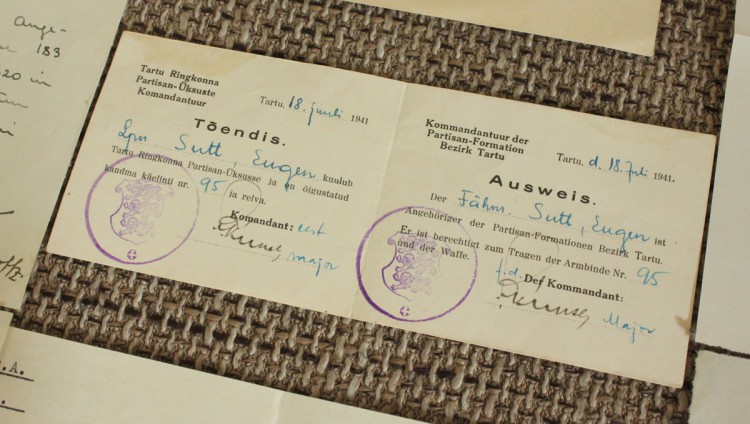 ange-
183
20 in
Tartu Ringkonna
Partisan-Üksuste
Komandantuur
Tartu, 18. juuli 1941
Tõendis.
Lpn Sutt, Eugen kuulub
Tartu Ringkonna Partisan-Üksusse ja on õigustatud
kandma käelinti nr. 95 ja relva.
Komandant: eest
major
Kommandantuur der
Partisan-Formation
Bezirk Tartu
Tartu, d. 18. Juli 1941.
Ausweis.
Der Fähnr. Sutt, Eugen ist
Angehöriger der Partisan-Formationen Bezirk Tartu.
Er ist berechtigt zum Tragen der Armbinde Nr. 95
und der Waffe.
f.d. Der Kommandant:
Major
.A.